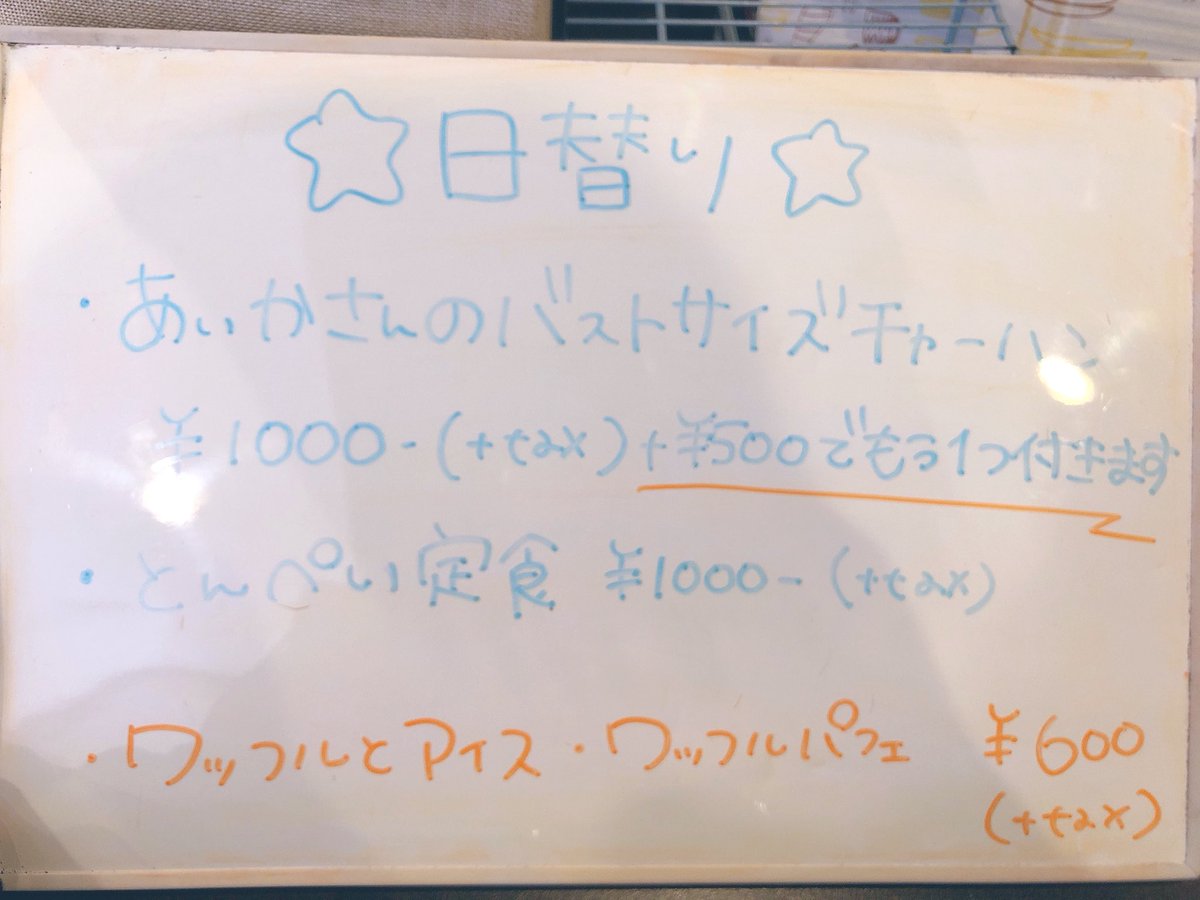 ☆日替り☆
・あいかさんのバストサイズチャーハン
¥1000-(+tax)+¥500でもう1つ付きます
・とんぺい定食 ¥1000-(+tax)
・ワッフルとアイス・ワッフルパフェ ¥600
(+tax)